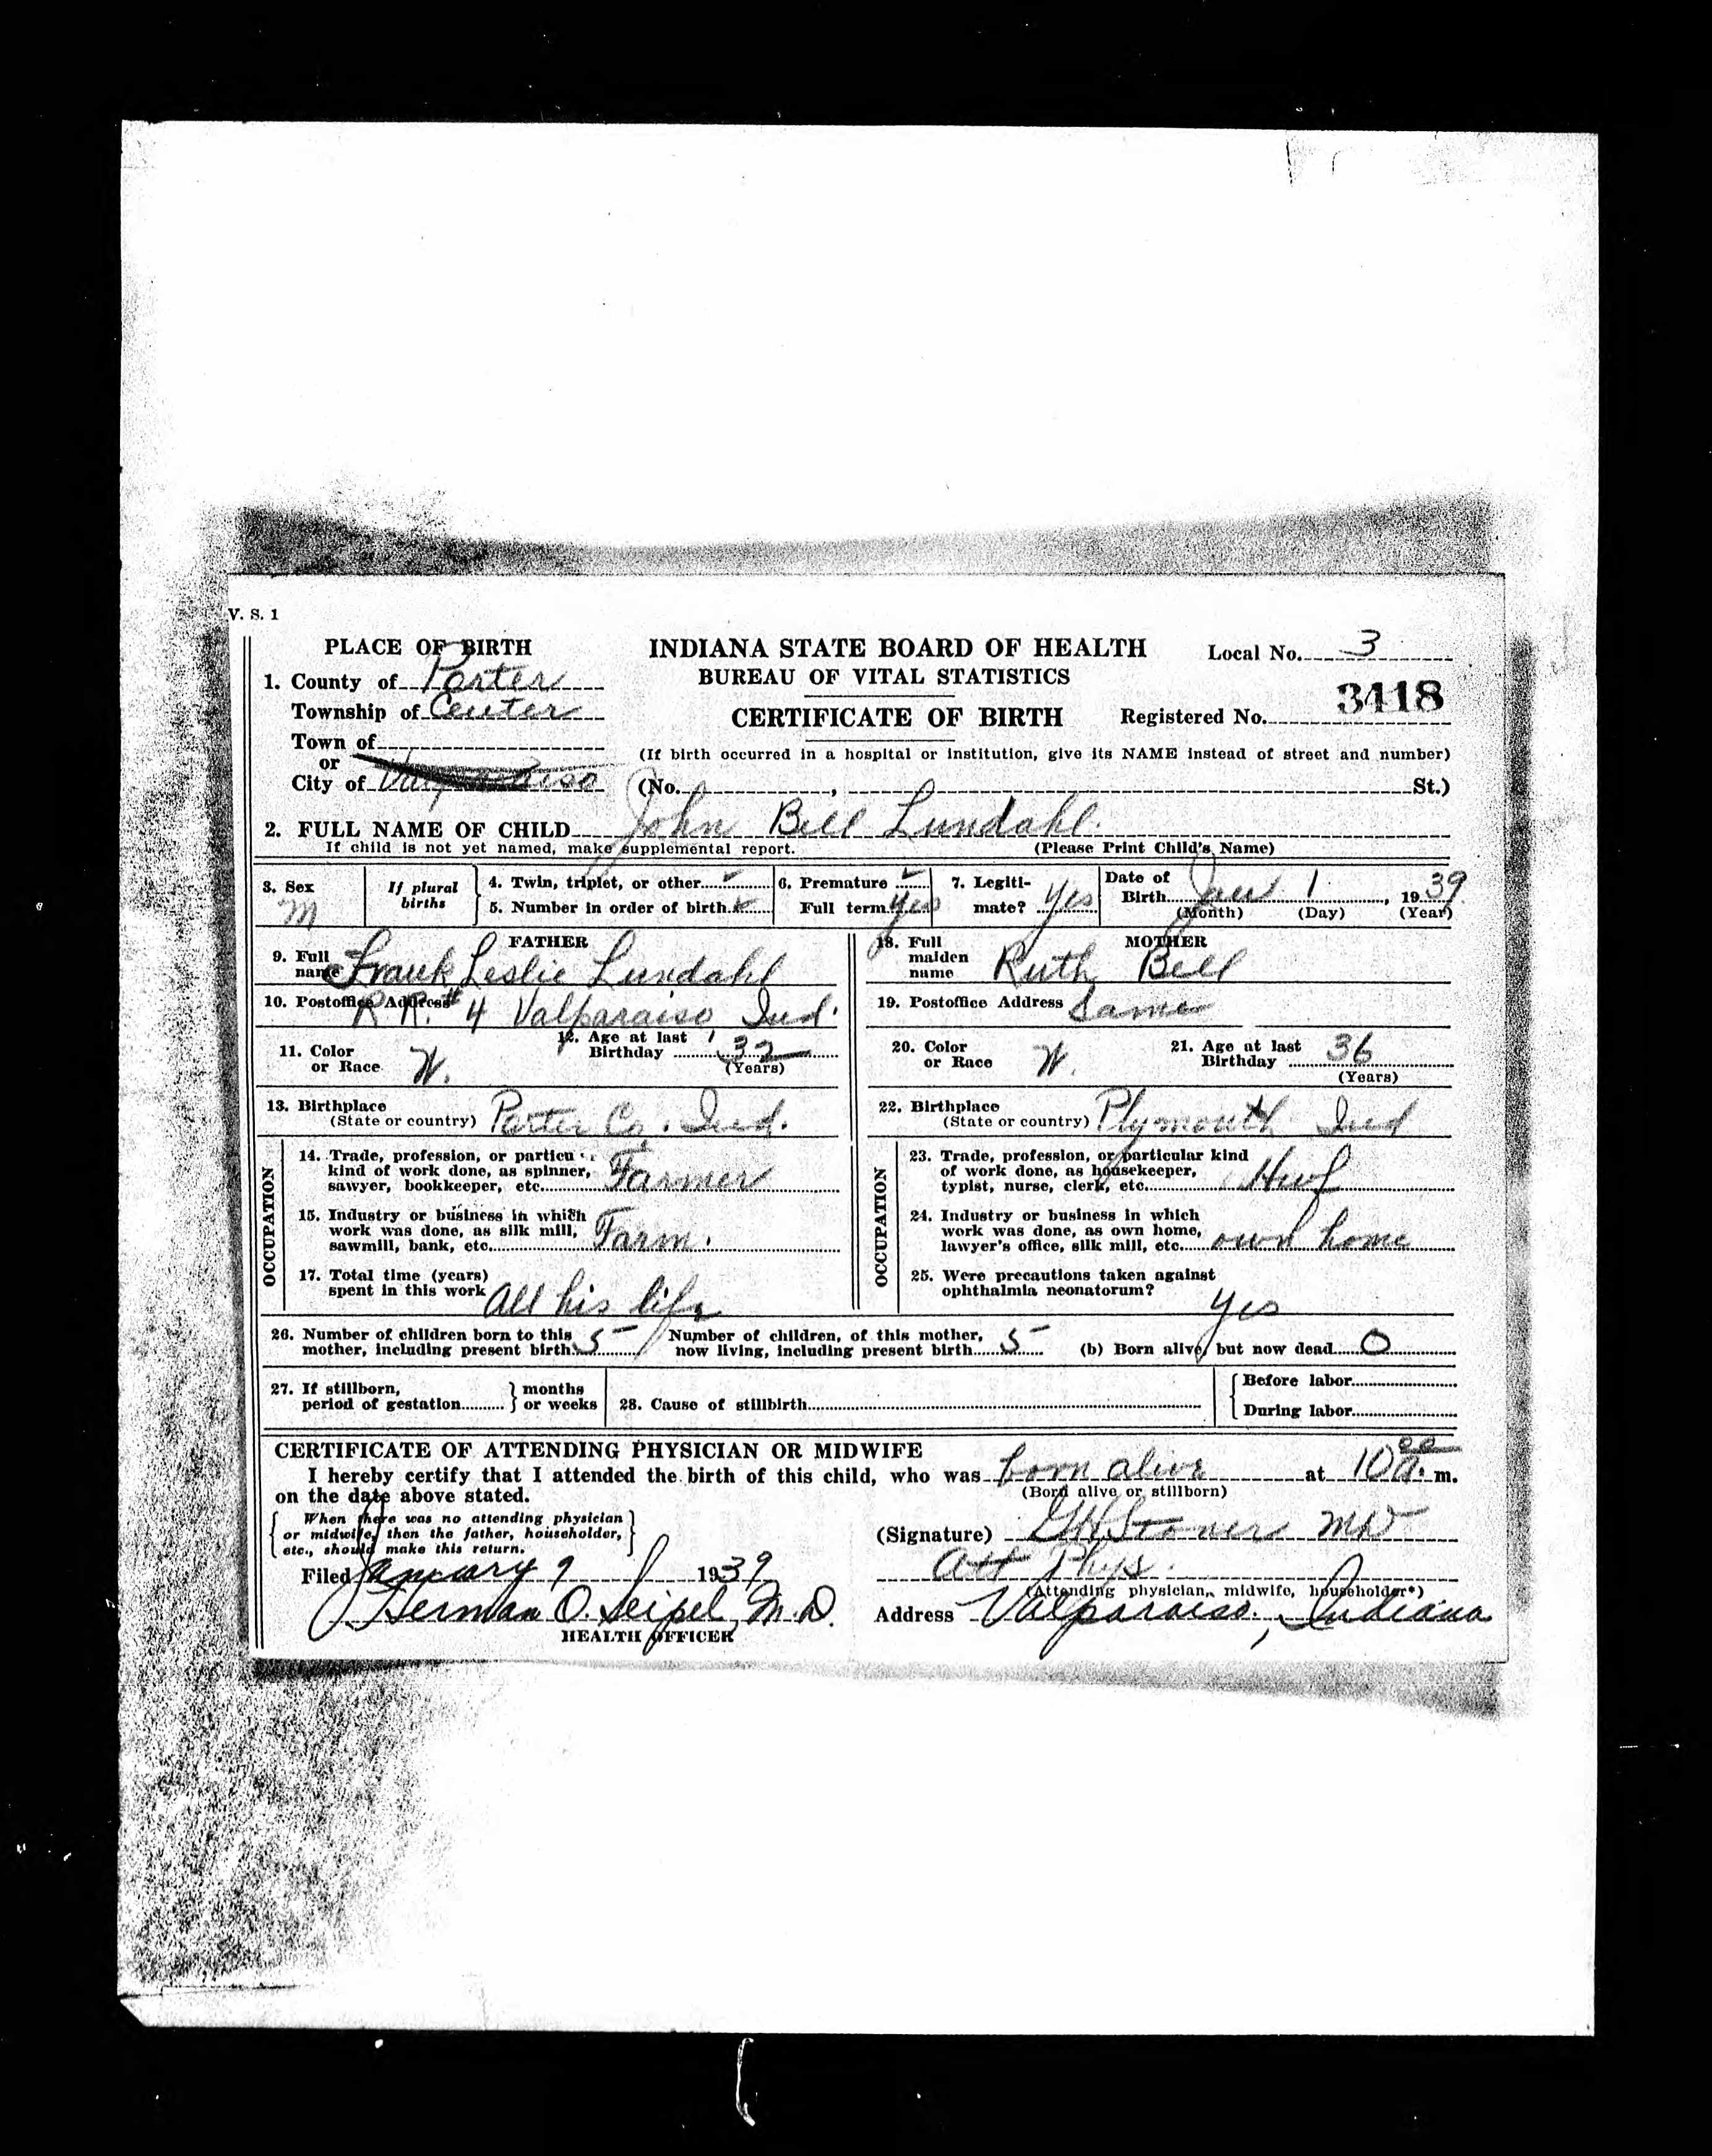 V. S. 1
PLACE OF BIRTH
INDIANA STATE BOARD OF HEALTH
Local No. 3
1. County of Porter
BUREAU OF VITAL STATISTICS
Township of Center
CERTIFICATE OF BIRTH
Registered No. 3418
Town of
or
(If birth occurred in a hospital or institution, give its NAME instead of street and number)
City of Valparaiso
(No. , St.)
2. FULL NAME OF CHILD John Bell Lundahl.
If child is not yet named, make supplemental report. (Please Print Child's Name)
3. Sex M
If plural births
4. Twin, triplet, or other
5. Number in order of birth
6. Premature
Full term Yes
7. Legiti-
mate? Yes
Date of
Birth Jan 1, 1939
(Month) (Day) (Year)
FATHER
9. Full
name Frank Leslie Lundahl
10. Postoffice Address R R. # 4 Valparaiso, Ind.
11. Color
or Race W.
12. Age at last
Birthday 32
(Years)
13. Birthplace
(State or country) Porter Co. Ind.
OCCUPATION
14. Trade, profession, or particu
kind of work done, as spinner,
sawyer, bookkeeper, etc. Farmer
15. Industry or business in which
work was done, as silk mill,
sawmill, bank, etc. Farm.
17. Total time (years)
spent in this work All his life
MOTHER
18. Full
maiden
name Ruth Bell
19. Postoffice Address Same
20. Color
or Race W.
21. Age at last
Birthday 36
(Years)
22. Birthplace
(State or country) Plymouth Ind
OCCUPATION
23. Trade, profession, or particular kind
of work done, as housekeeper,
typist, nurse, clerk, etc. Hwf
24. Industry or business in which
work was done, as own home,
lawyer's office, silk mill, etc. own home
25. Were precautions taken against
ophthalmia neonatorum? Yes
26. Number of children born to this
mother, including present birth 5
Number of children, of this mother,
now living, including present birth 5
(b) Born alive, but now dead 0
27. If stillborn,
period of gestation } months
or weeks
28. Cause of stillbirth
Before labor
During labor
CERTIFICATE OF ATTENDING PHYSICIAN OR MIDWIFE
I hereby certify that I attended the birth of this child, who was born alive at 10 a. m.
on the date above stated. (Born alive or stillborn)
When there was no attending physician
or midwife, then the father, householder,
etc., should make this return.
(Signature) GH Stoner MD
Att Phys.
(Attending physician, midwife, householder*)
Filed January 9 1939
Herman O. Seipel, M.D.
HEALTH OFFICER
Address Valparaiso, Indiana